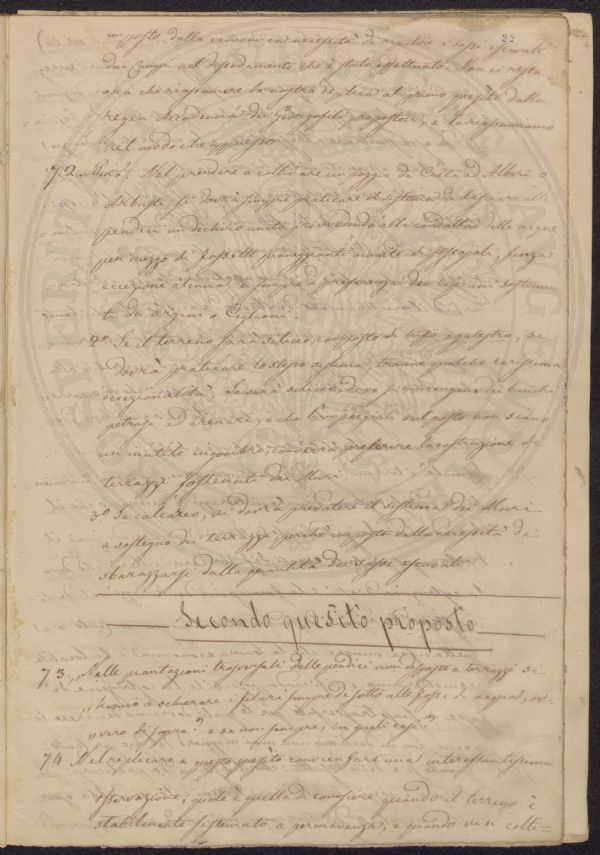 22
imposto dalla economica necessità di repulire i sassi escavati
dai Campi nel dissodamento che è stato effettuato. Non ci resta
ora che riassumere la nostra replica al primo quesito dalla
regia Accademia dei Georgofili propostoci, e la riassumiamo
nel modo che appresso
72 Primo. Nel prendere a coltivare un poggio di Creta ad Alberi o
Arbusti, si dovrà sempre praticare il sistema di lasciare alle
pendici un declivio unito, provvedendo alla condotta delle acque
per mezzo di fossette pianeggianti munite di fossajoli, senza
eccezione alcuna, e sempre a preferenza dei ripiani sostenu-
ti da argini o Ciglioni.
2º Se il terreno sarà siliceo, composto di tufo o galestro, si
dovrà praticare lo stesso sistema, tranne qualche rarissima
eccezionalità. Se sarà siliceo, dove si rinvengano dei banchi
petrosi ed arenarj, che
un inutile ingombro, converrà preferire la costruzione di
terrazzi sostenuti dai Muri.
3º Se calcareo, vi dovrà predare il sistema dei Muri
a sostegno dei terrazzi, perchè imposto dalla necessità di
sbarazzarsi dalla quantità dei sassi escavati.
Secondo quesito proposto
73 „Nelle piantazioni trasversali delle pendici non disposte a terrazzi si
„hanno a schierare i filari sempre di sotto alle fosse di acqua, ov-
„vero di sopra? e se non sempre, in quali casi?"
74. Nel replicare a questo quesito convien fare una interessantissima
osservazione, quale è quella di conoscere quando il terreno è
stabilmente sistemato a permanenza, e quando vi si colti-